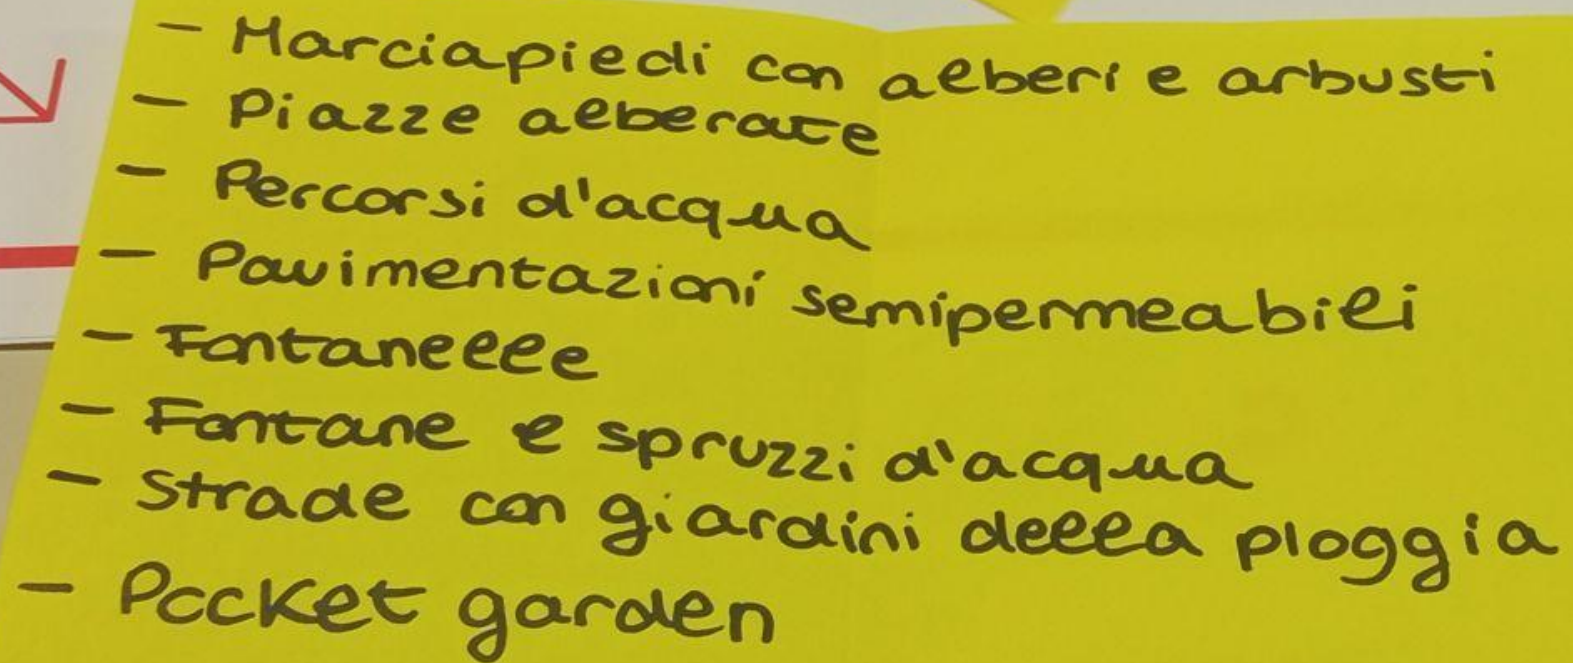 - Marciapiedi con alberi e arbusti
- Piazze alberate
- Percorsi d'acqua
- Pavimentazioni semipermeabili
- Fontanelle
- Fontane e spruzzi d'acqua
- Strade con giardini della pioggia
- Pocket garden